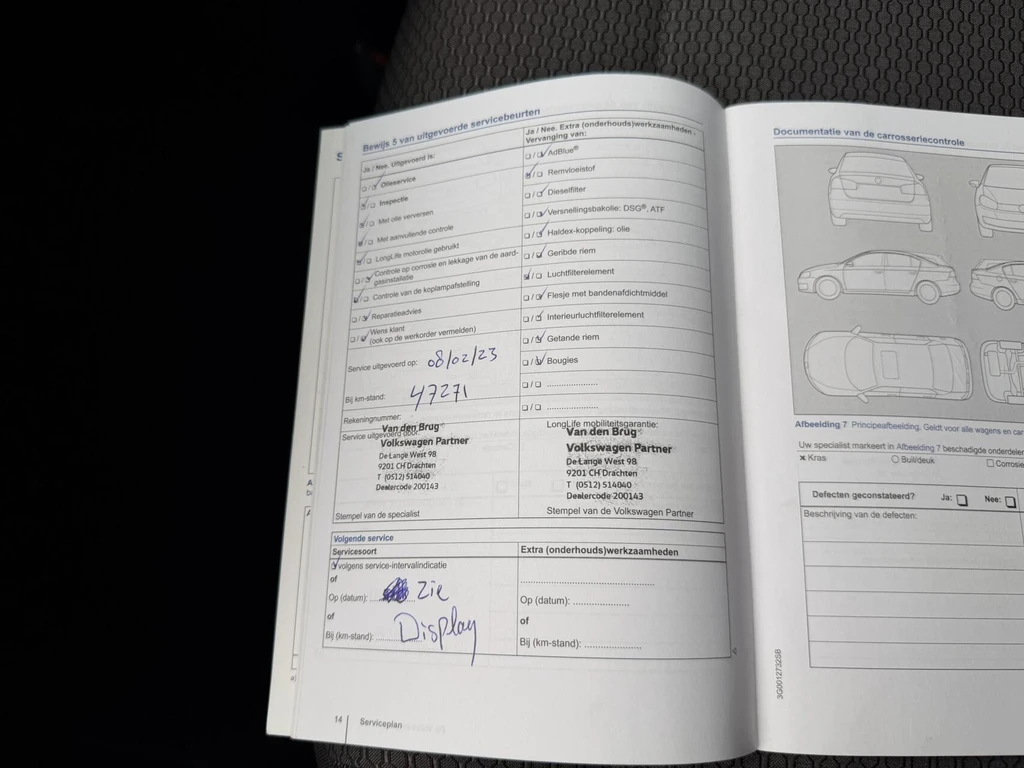 Bewijs 5 van uitgevoerde servicebeurten
Ja / Nee. Uitgevoerd is:
Olieservice
Inspectie
Met olie verversen
Met aanvullende controle
LongLife motorolie gebruikt
Controle op corrosie en lekkage van de aard-
gasinstallatie
Controle van de koplampafstelling
Reparatieadvies
Wens klant
(ook op de werkorder vermelden)
Service uitgevoerd op: 08/02/23
Bij km-stand: 47271
Rekeningnummer:
Service uitgevoerd door:
Van den Brug
Volkswagen Partner
De Lange West 98
9201 CH Drachten
T (0512) 514040
Dealercode 200143
Stempel van de specialist
Ja / Nee. Extra (onderhouds)werkzaamheden -
Vervanging van:
AdBlue®
Remvloeistof
Dieselfilter
Versnellingsbakolie: DSG®, ATF
Haldex-koppeling: olie
Geribde riem
Luchtfilterelement
Flesje met bandenafdichtmiddel
Interieurluchtfilterelement
Getande riem
Bougies
LongLife mobiliteitsgarantie:
Van den Brug
Volkswagen Partner
De Lange West 98
9201 CH Drachten
T (0512) 514040
Dealercode 200143
Stempel van de Volkswagen Partner
Volgende service
Servicesoort
volgens service-intervalindicatie
of
Op (datum): Zie
of
Bij (km-stand): Display
Extra (onderhouds)werkzaamheden
Op (datum):
of
Bij (km-stand):
14 Serviceplan
Documentatie van de carrosseriecontrole
Afbeelding 7 Principeafbeelding. Geldt voor alle wagens en car
Uw specialist markeert in Afbeelding 7 beschadigde onderdelen
x Kras Buil/deuk Corrosie
Defecten geconstateerd? Ja: Nee:
Beschrijving van de defecten:
3G0012732SB